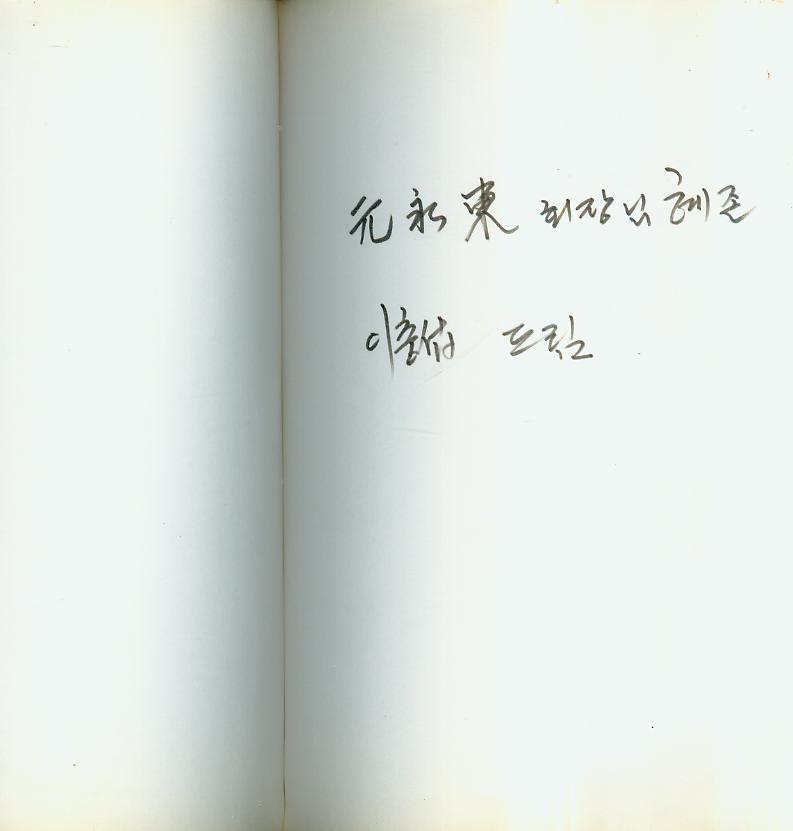 元永東 회장님 혜존
이충섭 드림